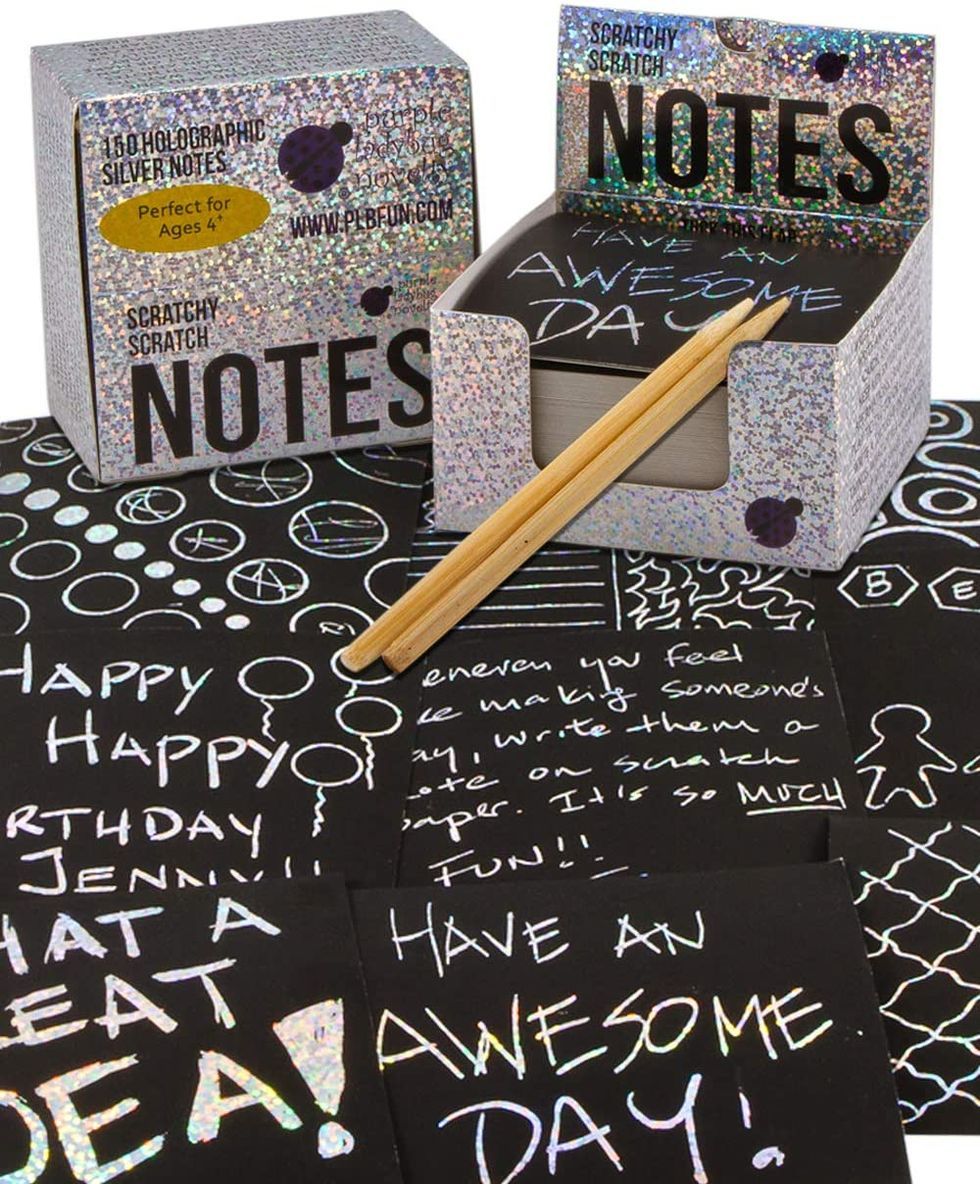 150 HOLOGRAPHIC
SILVER NOTES
Perfect for
Ages 4+
purple
ladybug
novelty
WWW.PLBFUN.COM
SCRATCHY
SCRATCH
NOTES
purple
ladybug
novelty
SCRATCHY
SCRATCH
NOTES
TUCK THIS FLAP
HAVE AN
AWESOME
DA
B E
HAPPY
HAPPY
RTHDAY
JENNY!!
enever you feel
ke making someone's
ay, write them a
ote on scratch
paper. It's so MUCH
FUN!!
HAT A
EAT
DEA!
HAVE AN
AWESOME
DAY!